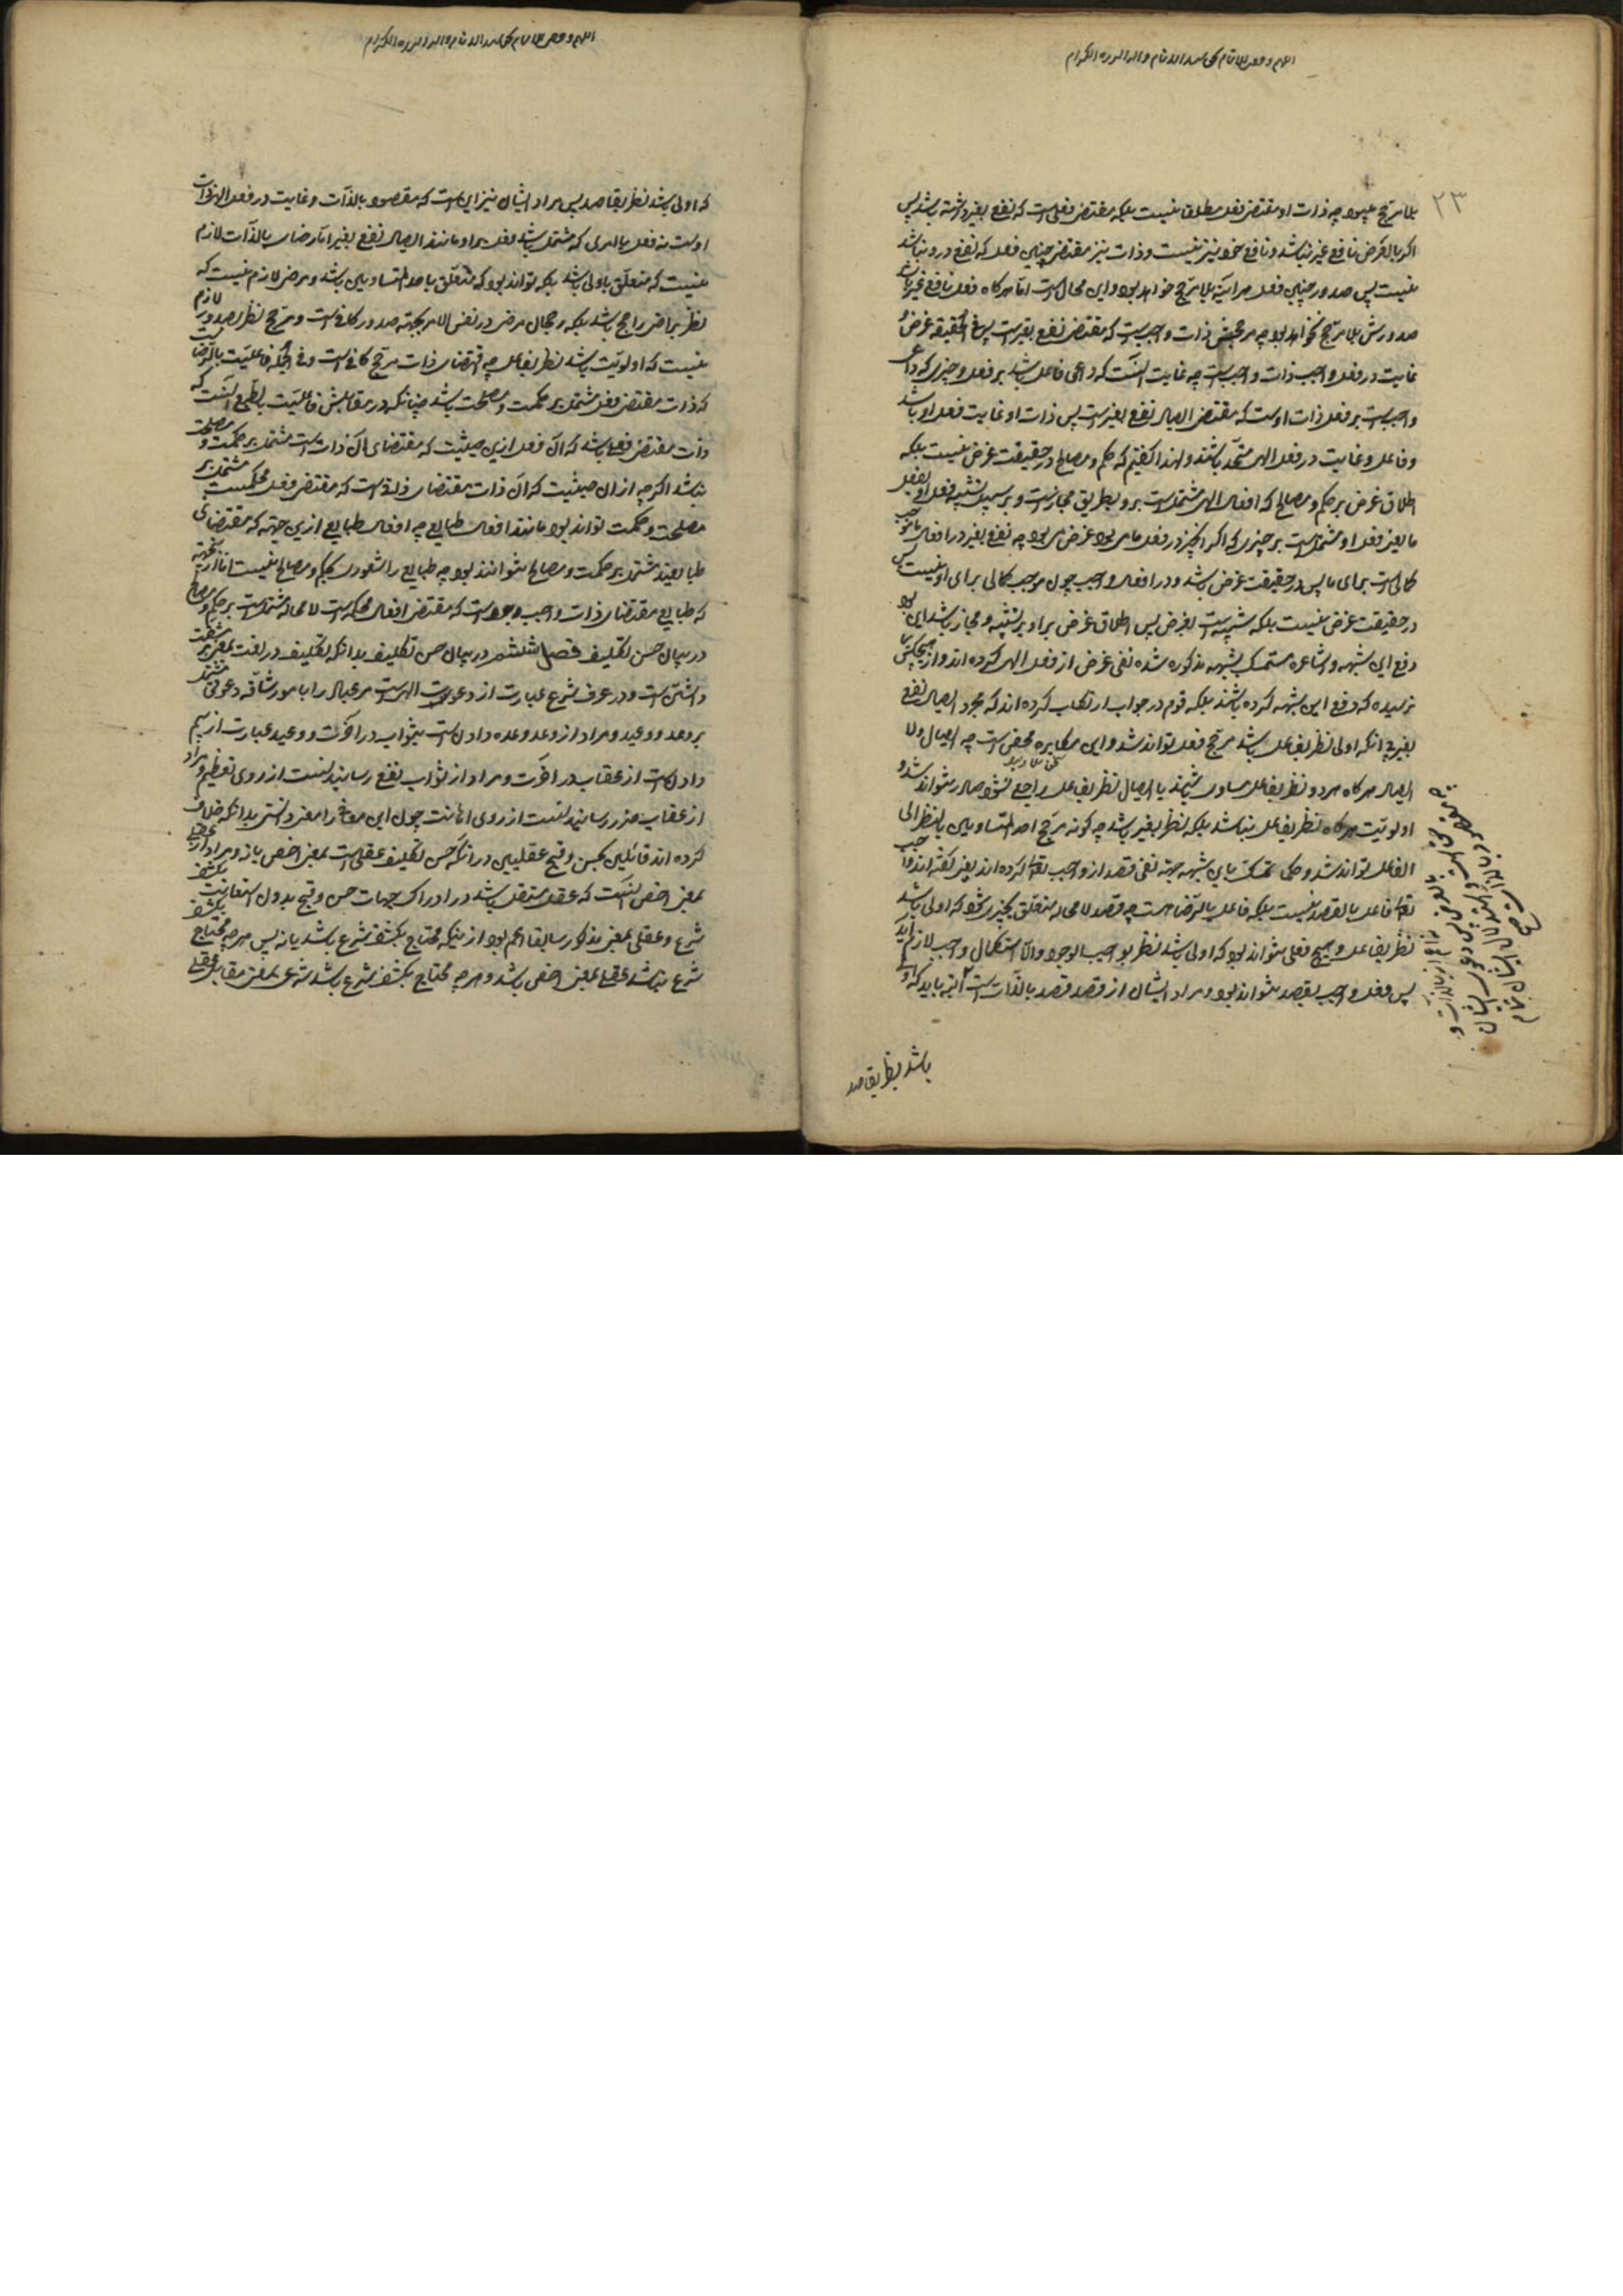 ۲۳
بلا مرجح چه ذات او مقتضی فعل مطلق نیست بلکه مقتضی فعلی است که نفع بغیر داشته باشد پس
اگر بالفرض نافع غیر نباشد و نافع خود نیز نیست و ذات نیز مقتضی چنین فعل که نفع درو نباشد
نیست پس صدور چنین فعل هرآینه بلا مرجح خواهد بود و این محال است اما هرگاه فعل نافع غیر باشد
صدورش بلا مرجح نخواهد بود چه مرجحش ذات واجب است که مقتضی نفع بغیر است پس فی الحقیقه غرض و
غایت در فعل واجب ذات واجب است چه غایت آنست که داعی فاعل باشد بر فعل و چیزی که داعی
واجب است بر فعل ذات اوست که مقتضی ایصال نفع بغیر است پس ذات او غایت فعل او باشد
و فاعل و غایت در فعل الهی متحد باشند و لهذا گفتیم که حکم و مصالح در حقیقت غرض نیست بلکه
اطلاق غرض بر حکم و مصالح که افعال الهی مشتمل است برو بطریق مجاز است و بر سبیل تشبیه فعل او بفعل
ما یعنی فعل او مشتمل است بر چیزی که اگر آن چیز در فعل ما می بود غرض می بود چه نفع بغیر در افعال ما موجب
کمالی است برای ما پس در حقیقت غرض باشد و در افعال واجب چون موجب کمالی برای او نیست پس
در حقیقت غرض نیست بلکه شبیه است بغرض پس اطلاق غرض برو بر تشبیه و مجاز باشد این بود
دفع این شبهه و اشاعره متمسک بشبهه مذکوره شده نفی غرض از فعل الهی کرده اند و از هیچکس بما
نرسیده که دفع این شبهه کرده باشند بلکه قوم در جواب ارتکاب کرده اند که مجرد ایصال نفع
بغیر بی آنکه اولی نظر بفاعل باشد مرجح فعل تواند شد و این مکابره محض است چه ایصال و لا
ایصال هرگاه هر دو نظر بفاعل مساوی باشند یا ایصال نظر بفاعل راجح نشود صادر نتواند شد و
اولویت هرگاه نظر بفاعل نباشد بلکه نظر بغیر باشد چه گونه مرجح احد المتساویین بالنظر الی
الفاعل تواند شد و حکما تمسک باین شبهه جهة نفی قصد از واجب تعالی کرده اند یعنی گفته اند واجب
تعالی فاعل بالقصد نیست بلکه فاعل بالرضا است چه قصد لا محاله متعلق بچیزی شود که اولی باشد
نظر بفاعل و هیچ فعلی نتواند بود که اولی باشد نظر بواجب الوجود و الا استکمال واجب لازم آید
پس فعل واجب بقصد نتواند بود و مراد ایشان از قصد قصد بالذات است البته باید که اولی
باشد نظر بقاصد
که اولی باشد نظر بقاصد پس مراد ایشان نیز این است که مقصود بالذات و غایت در فعل الهی ذات
اوست نه فعل یا امری که مشتمل باشد فعل برو مانند ایصال نفع بغیر اما رضای بالذات لازم
نیست که متعلق باولی باشد بلکه تواند بود که متعلق باحد المتساویین باشد و مرضی لازم نیست که
نظر براضی راجح باشد بلکه رجحان مرضی در نفس الامر بجهة صدور کافی است و مرجح نظر بصدور لازم
نیست که اولویت باشد نظر بفاعل چه اقتضای ذات مرجح کافی است و فی الجمله فاعلیت بالرضا آنست
که ذات مقتضی فعل مشتمل بر حکمت و مصلحت باشد چنانکه در مقابلش فاعلیت بالطبع آنست که
ذات مقتضی فعلی باشد که آن فعل ازین حیثیت که مقتضای آن ذات است مشتمل بر حکمت و مصلحت
نباشد اگرچه از آن حیثیت که آن ذات مقتضای ذاتی است که مقتضی فعل محکم است مشتمل بر
مصلحت و حکمت تواند بود مانند افعال طبایع چه افعال طبایع ازین جهة که مقتضای
طبایعند مشتمل بر حکمت و مصالح نتوانند بود چه طبایع را شعور بحکم و مصالح نیست اما ازین جهة
که طبایع مقتضای ذات واجب وجود است که مقتضی افعال محکم است لا محاله مشتمل است بر حکم و مصالح
در بیان حسن تکلیف فصل ششم در بیان حسن تکلیف بدانکه تکلیف در لغت بمعنی مشقت
داشتن است و در عرف شرع عبارت از دعوت الهی است مر عباد را بامور شاقه دعوتی مشتمل
بر وعد و وعید و مراد از وعد وعده دادن است بثواب در آخرت و وعید عبارت از بیم
دادن است از عقاب در آخرت و مراد از ثواب نفع رسانیدنست از روی تعظیم و مراد
از عقاب ضرر رسانیدنست از روی اهانت چون این معانی را معنی دانستی بدانکه خلاف
کرده اند قائلین بحسن و قبح عقلیین در آنکه حسن تکلیف عقلی است بمعنی اخص یا نه و مراد از عقلی
بمعنی اخص آنست که عقل مستقل باشد در ادراک جهات حسن و قبح بدون استعانت بکشف
شرع و عقلی بمعنی مذکور سابقا اعم بود از اینکه محتاج بکشف شرع باشد یا نه پس هرچه محتاج بکشف
شرع نباشد عقلی بمعنی اخص باشد و هرچه محتاج بکشف شرع باشد شرعی بمعنی مقابل عقلی